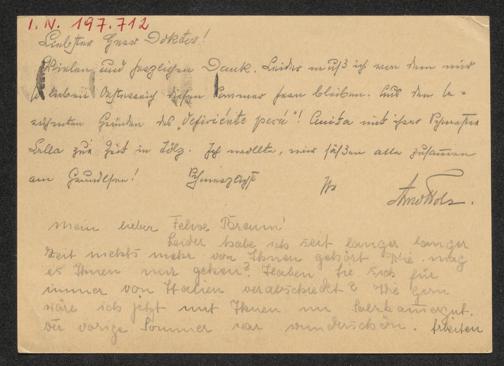 I. N. 197.712
Liebster Herr Doktor!
Vielen und herzlichen Dank. Leider muß ich von dem mir
so lieben Oesterreich diesen Sommer fern bleiben. Aus den be-
rühmten Gründen des "deficiente pecu"! Anita mit ihrer Schwester
Lella zur Zeit in Tölz. Ich wollte, wir säßen alle zusammen
am Grundlsee! Schmerzlichst
Ihr
Arno Holz.
Mein lieber Felix Braun!
Leider habe ich seit langer langer
Zeit nichts mehr von Ihnen gehört. Wie mag
es Ihnen nur gehen? Haben Sie sich für
immer von Italien verabschiedet? Wie gern
wäre ich jetzt mit Ihnen im Salzkammergut.
Der vorige Sommer war wunderschön. Arbeiten